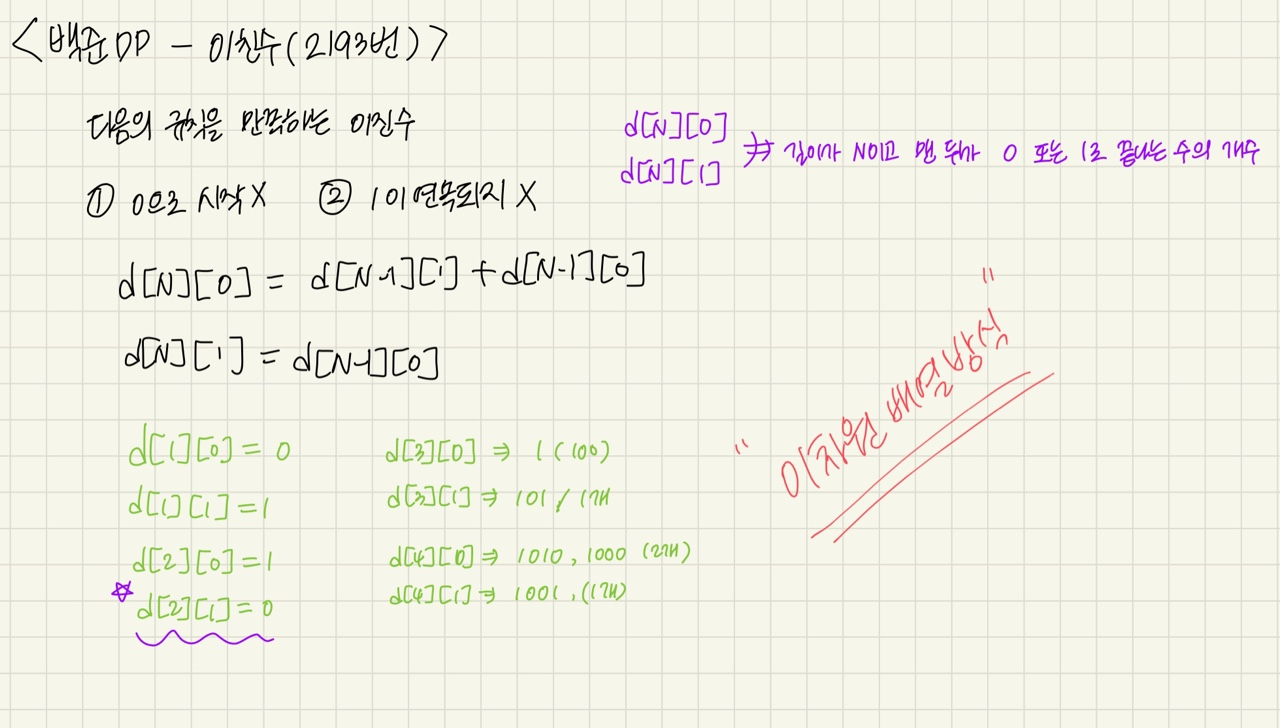 <백준 DP - 이친수(2193번)>
다음의 규칙을 만족하는 이진수
① 0으로 시작 X ② 1이 연속되지 X
d[N][0]
d[N][1]
⇒ 길이가 N이고 맨 뒤가 0 또는 1로 끝나는 수의 개수
d[N][0] = d[N-1][1] + d[N-1][0]
d[N][1] = d[N-1][0]
"이차원 배열 방식"
d[1][0] = 0
d[1][1] = 1
d[2][0] = 1
☆ d[2][1] = 0
d[3][0] ⇒ 1 (100)
d[3][1] ⇒ 101 / 1개
d[4][0] ⇒ 1010, 1000 (2개)
d[4][1] ⇒ 1001, (1개)